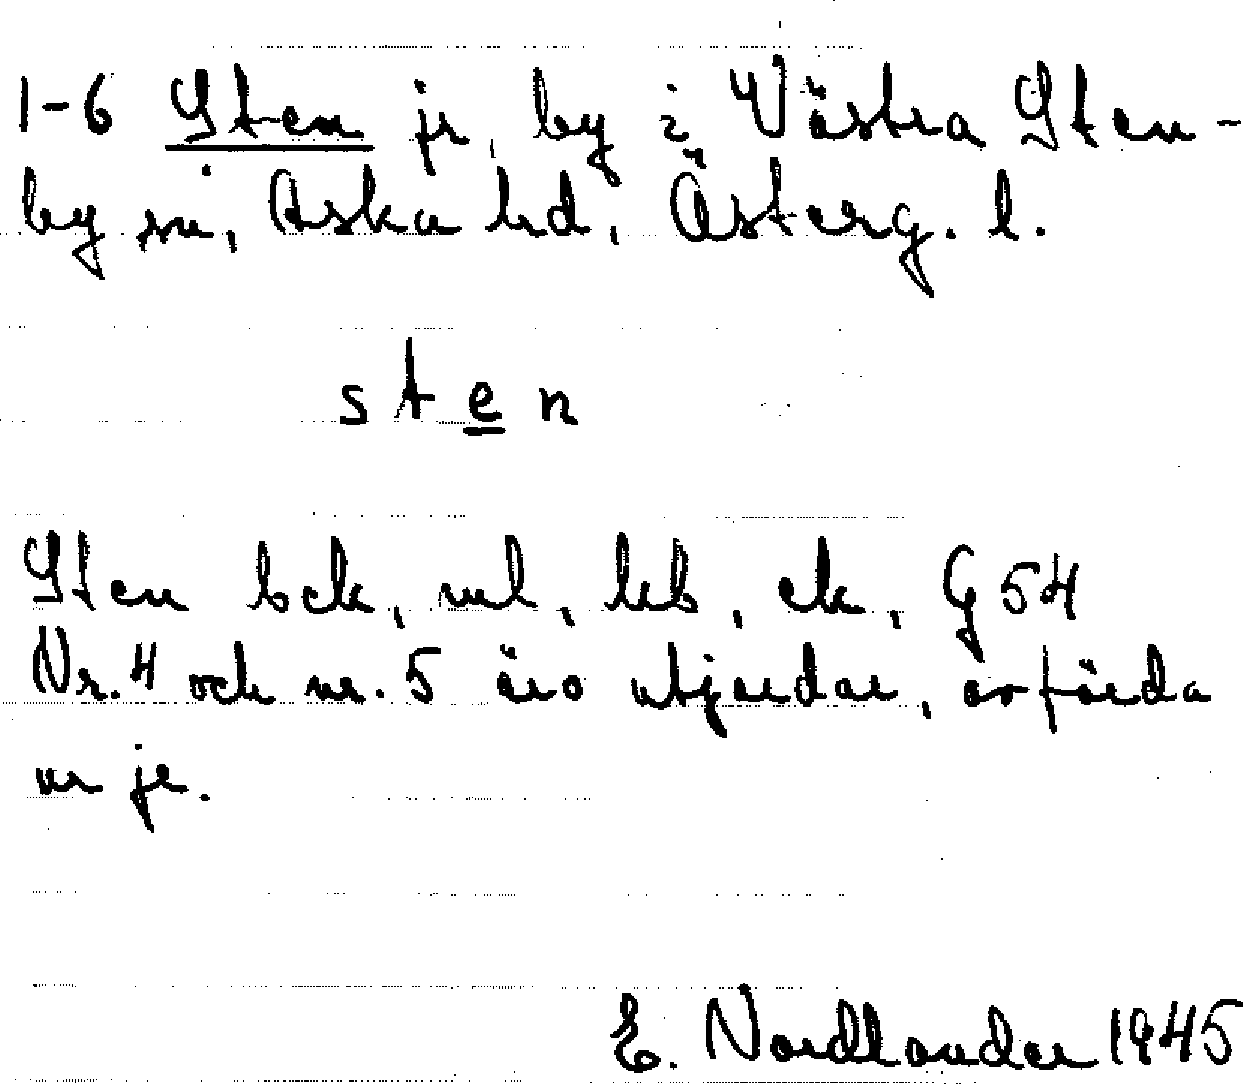 1-6 Sten jr, by i Västra Sten-
by sn, Aska hd, Österg. l.
sten
Sten bck, ml, hb, ek, G 54
Nr. 4 och nr. 5 äro utjordar, avförda
ur jr.
E. Nordlander 1945